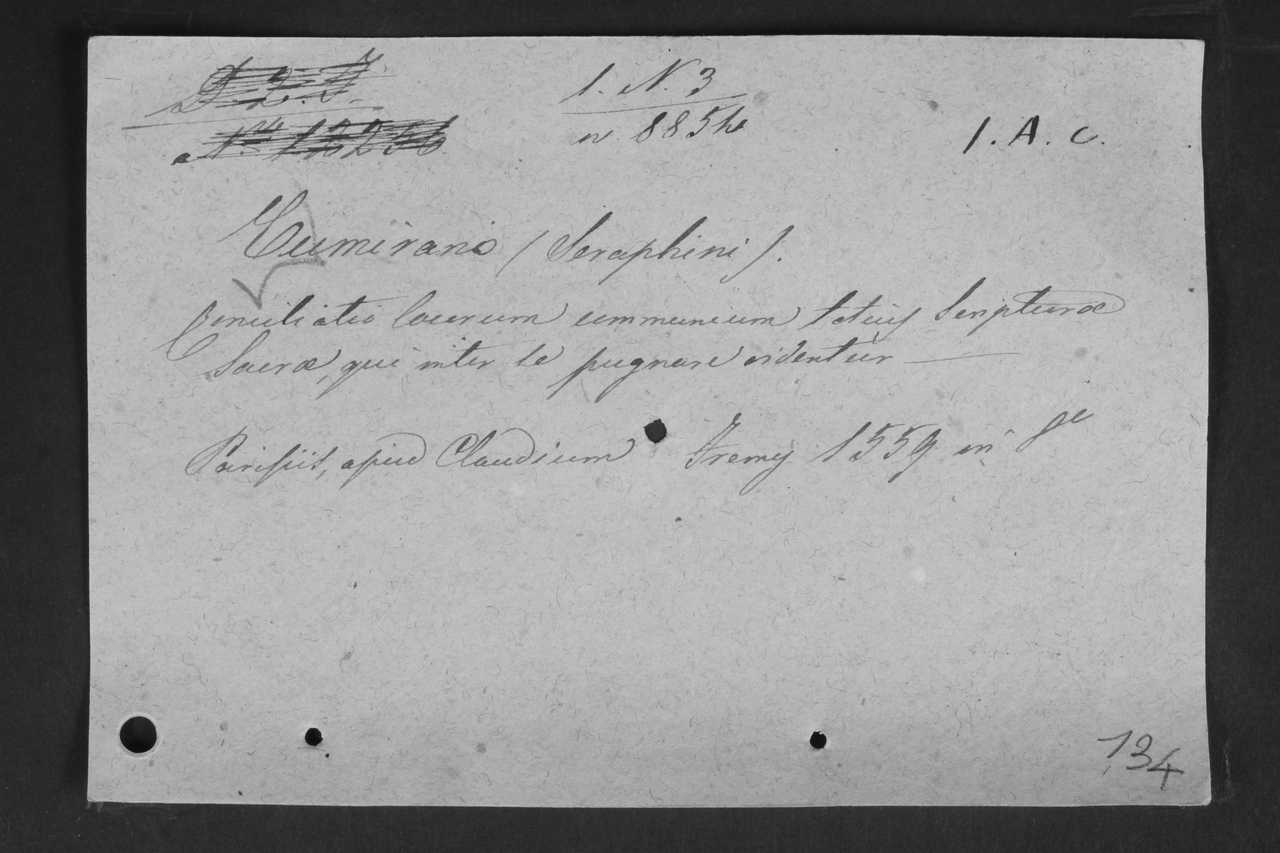 1. N. 3
n. 8854
1. A. c.
Cumirano (Seraphini).
Conciliatio locorum communium totius Scripturæ
Sacræ, qui inter se pugnare videntur
Parisiis, apud Claudium Fremy 1559 in
134